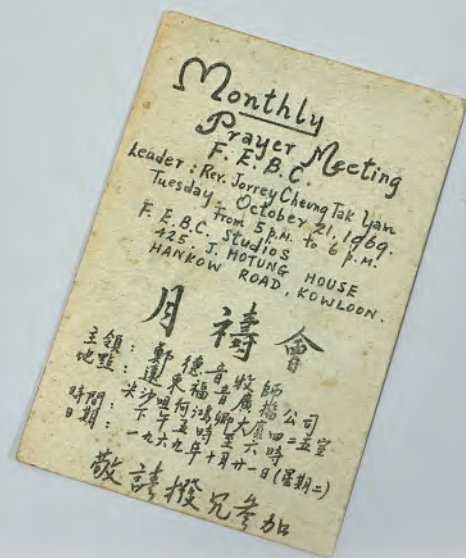 Monthly
Prayer Meeting
F. E. B. C.
Leader: Rev. Jorrey Cheung Tak Yam
Tuesday - October 21, 1969.
From 5 p.m. to 6 p.m.
F. E. B. C. Studios
425. J. HOTUNG HOUSE
HANKOW ROAD, KOWLOON.
月禱會
主領：鄭德音牧師
地點：遠東福音廣播公司
尖沙咀何鴻卿大廈四二五室
時間：下午五時至六時
日期：一九六九年十月廿一日(星期二)
敬請撥冗參加